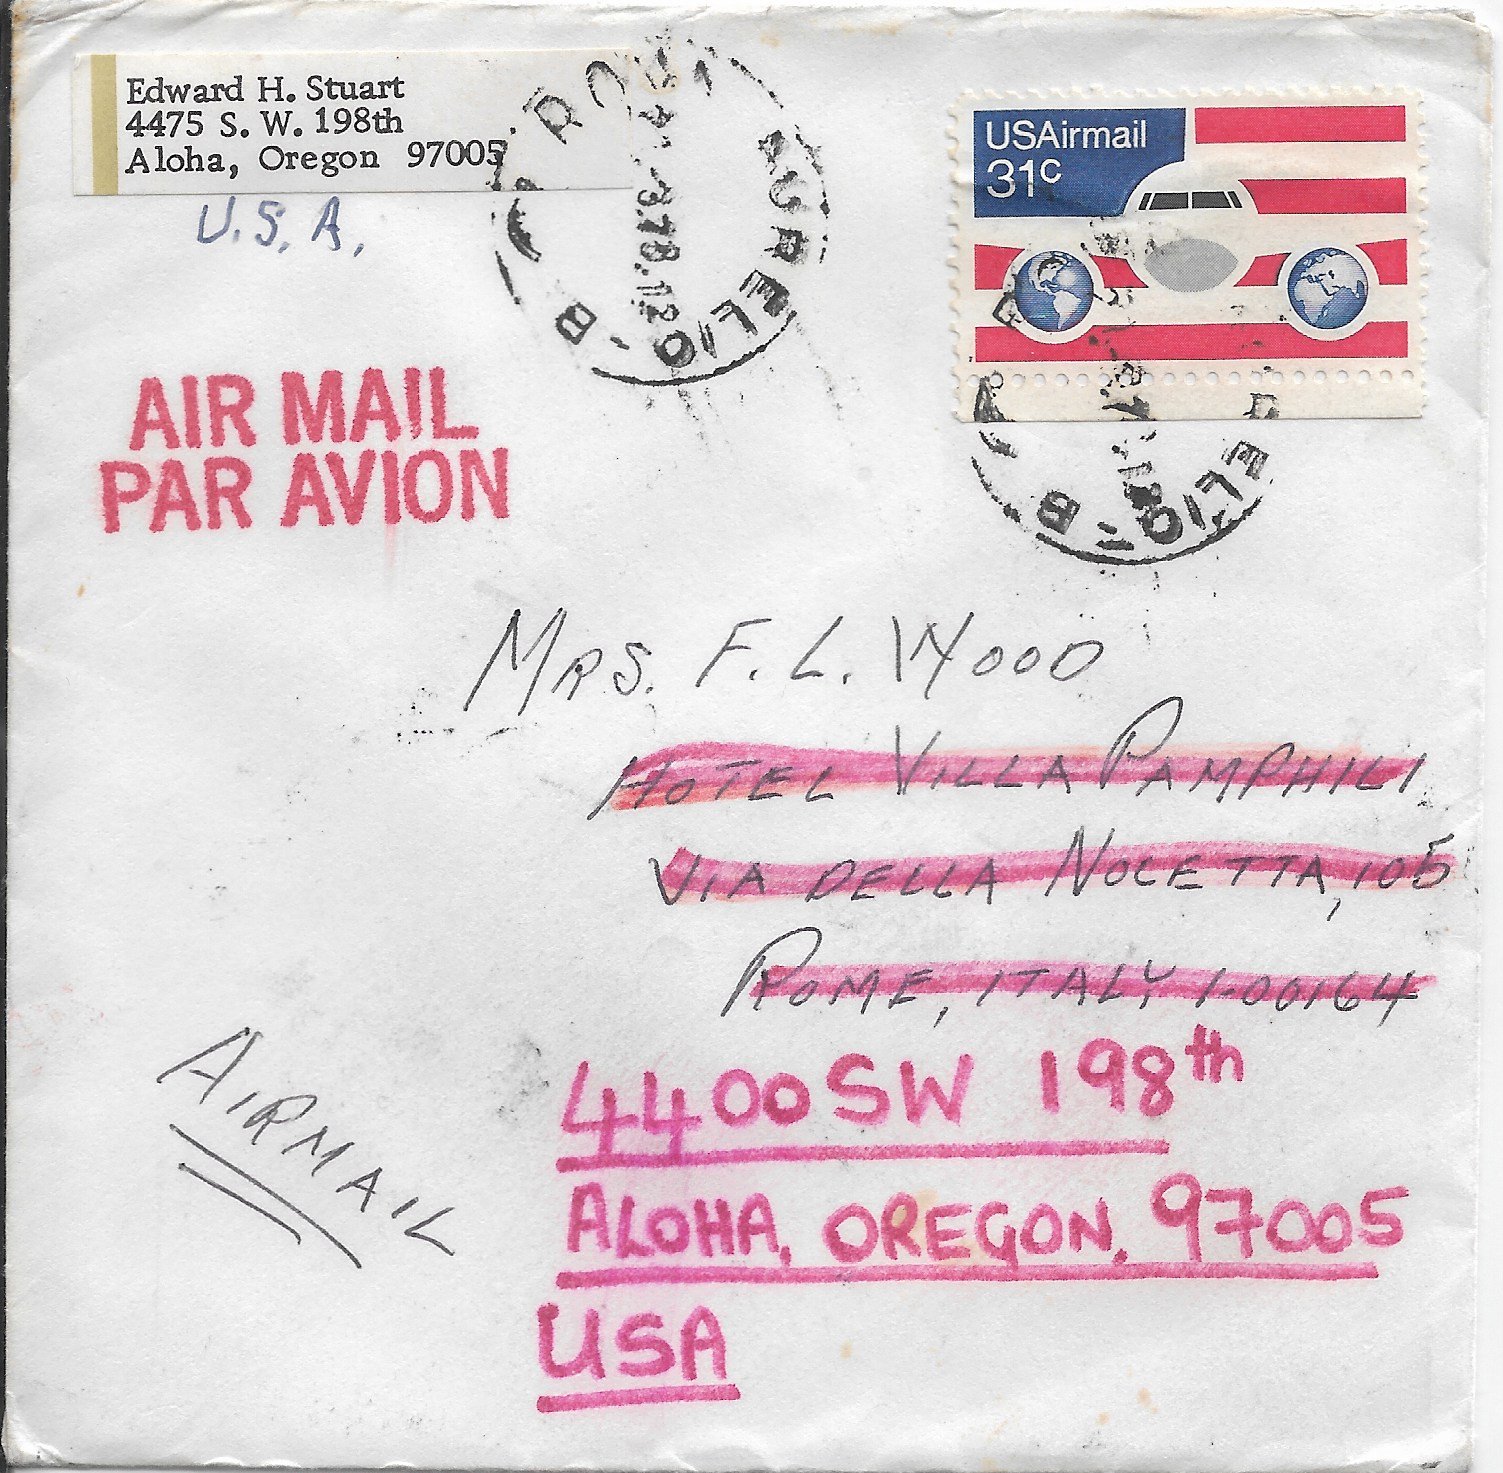 Edward H. Stuart
4475 S. W. 198th
Aloha, Oregon 97005
U.S.A.
AURELIO - B
USAirmail
31c
AIR MAIL
PAR AVION
ELIO - B
MRS. F. L. WOOD
HOTEL VILLA PAMPHILI
VIA DELLA NOCETTA, 105
ROME, ITALY 1-00164
AIRMAIL
4400 SW 198th
ALOHA, OREGON, 97005
USA